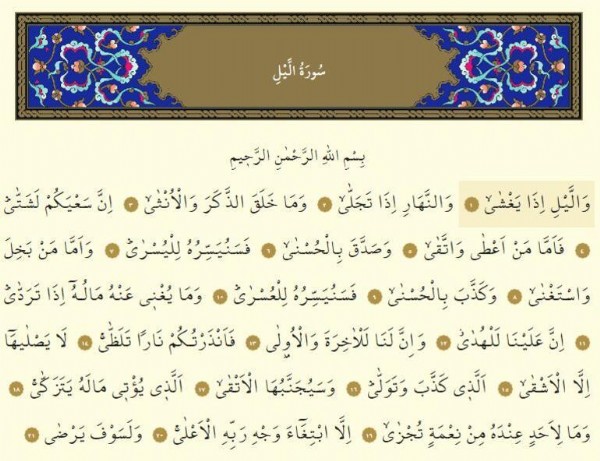 سُورَةُ الَّيْلِ
بِسْمِ اللهِ الرَّحْمٰنِ الرَّحِيمِ
وَالَّيْلِ اِذَا يَغْشٰىۙ ١ وَالنَّهَارِ اِذَا تَجَلّٰىۙ ٢ وَمَا خَلَقَ الذَّكَرَ وَالْاُنْثٰىۙ ٣ اِنَّ سَعْيَكُمْ لَشَتّٰىۜ
٤ فَاَمَّا مَنْ اَعْطٰى وَاتَّقٰىۙ ٥ وَصَدَّقَ بِالْحُسْنٰىۙ ٦ فَسَنُيَسِّرُهُ لِلْيُسْرٰىۜ ٧ وَاَمَّا مَنْ بَخِلَ
وَاسْتَغْنٰىۙ ٨ وَكَذَّبَ بِالْحُسْنٰىۙ ٩ فَسَنُيَسِّرُهُ لِلْعُسْرٰىۜ ١٠ وَمَا يُغْنٖى عَنْهُ مَالُهُٓ اِذَا تَرَدّٰىۜ
١١ اِنَّ عَلَيْنَا لَلْهُدٰىۘ ١٢ وَاِنَّ لَنَا لَلْاٰخِرَةَ وَالْاُو۫لٰى ١٣ فَاَنْذَرْتُكُمْ نَارًا تَلَظّٰىۚ ١٤ لَا يَصْلٰيهَٓا
اِلَّا الْاَشْقٰىۙ ١٥ اَلَّذٖى كَذَّبَ وَتَوَلّٰىۜ ١٦ وَسَيُجَنَّبُهَا الْاَتْقٰىۙ ١٧ اَلَّذٖى يُؤْتٖى مَالَهُ يَتَزَكّٰىۚ ١٨
وَمَا لِاَحَدٍ عِنْدَهُ مِنْ نِعْمَةٍ تُجْزٰىۙ ١٩ اِلَّا ابْتِغَٓاءَ وَجْهِ رَبِّهِ الْاَعْلٰىۚ ٢٠ وَلَسَوْفَ يَرْضٰى ٢١